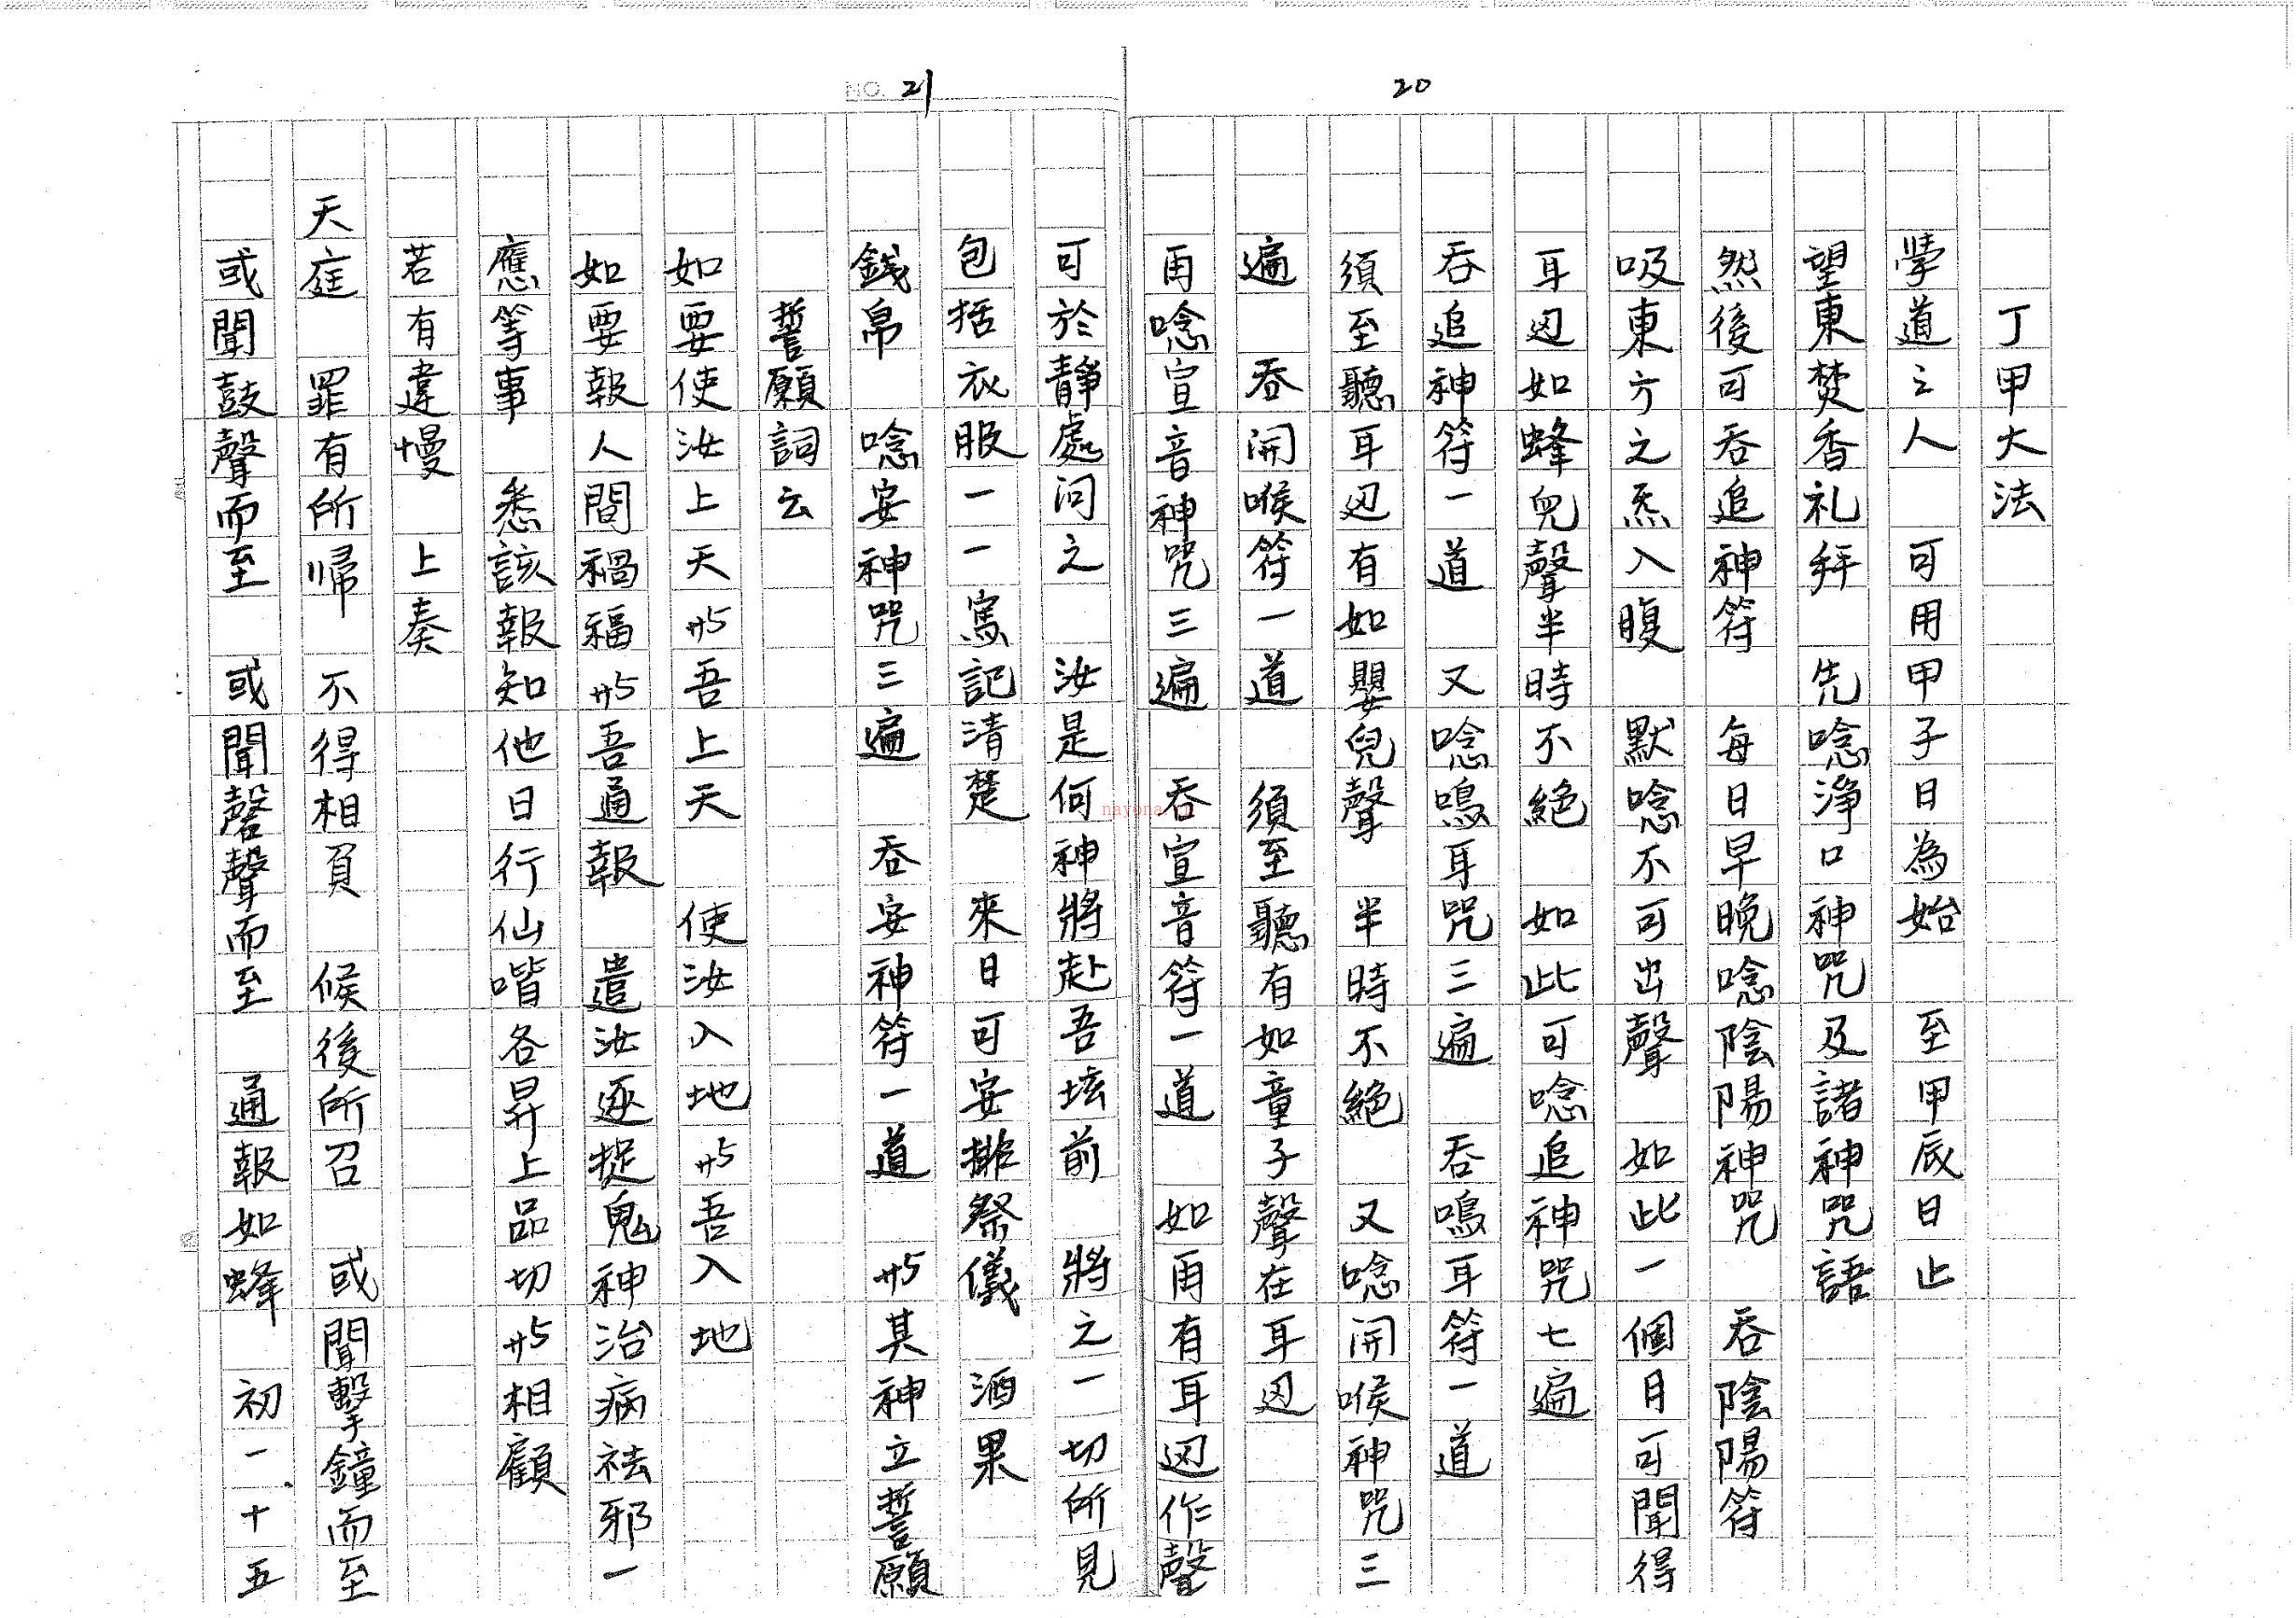 20
丁甲大法
學道之人　可用甲子日為始　至甲辰日止
望東焚香礼拜　先唸淨口神咒及諸神咒語
然後可吞追神符　每日早晚唸陰陽神咒　吞陰陽符
吸東方之炁入腹　默唸不可出聲　如此一個月可聞得
耳边如蜂兒聲半時不絕　如此可唸追神咒七遍
吞追神符一道　又唸鳴耳咒三遍　吞鳴耳符一道
須至聽耳边有如嬰兒聲　半時不絕　又唸開喉神咒三
遍　吞開喉符一道　須至聽有如童子聲在耳边
再唸宣音神咒三遍　吞宣音符一道　如再有耳边作聲
NO. 21
可於靜處问之　汝是何神將赴吾坛前　將之一切所見
包括衣服一一寫記清楚　來日可安排祭儀　酒果
錢帛　唸安神咒三遍　吞安神符一道　与其神立誓願
誓願詞云
如要使汝上天　与吾上天　使汝入地　与吾入地
如要報人間禍福　与吾通報　遣汝逐捉鬼神治病祛邪一
應等事　悉該報知他日行仙喈各昇上品切与相顧
若有違慢　上奏
天庭　罪有所歸　不得相負　候後所召　或聞擊鐘而至
或聞鼓聲而至　或聞磬聲而至　通報如蜂　初一、十五